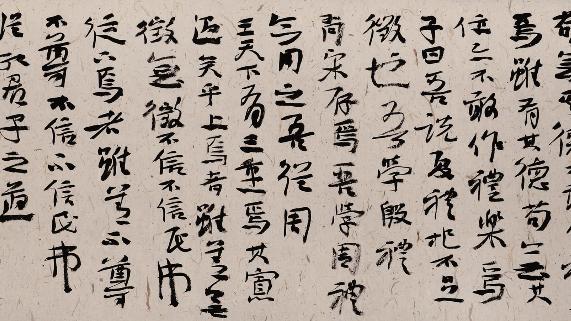 焉雖有其德苟無其
位亦不敢作禮樂焉
子曰吾説夏禮杞不足
徵也吾學殷禮
有宋存焉吾學周禮
今用之吾從周
王天下有三重焉其寡
過矣乎上焉者雖善無
徵無徵不信不信民弗
從下焉者雖善不尊
不尊不信不信民弗
從故君子之道